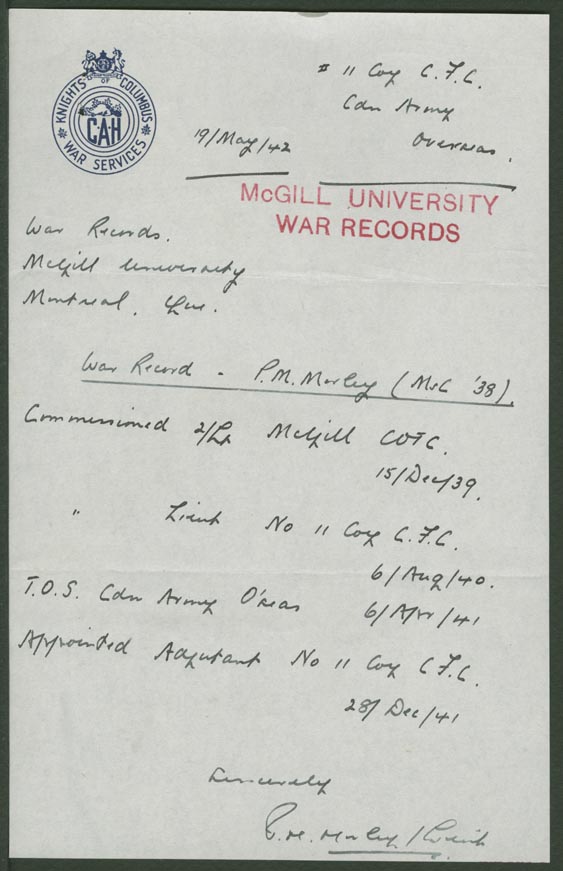 KNIGHTS OF COLUMBUS
CAH
WAR SERVICES
# 11 Coy C.F.C.
Cdn Army
Overseas.
19/May/42
McGILL UNIVERSITY
WAR RECORDS
War Records.
McGill University
Montreal, Que.
War Record - P.M. Morley (MSC '38).
Commissioned 2/Lt McGill COTC.
15/Dec/39.
" Lieut No 11 Coy C.F.C.
6/Aug/40.
T.O.S. Cdn Army O'seas 6/Apr/41
Appointed Adjutant No 11 Coy C.F.C.
28/Dec/41
Sincerely
P.M. Morley / Lieut